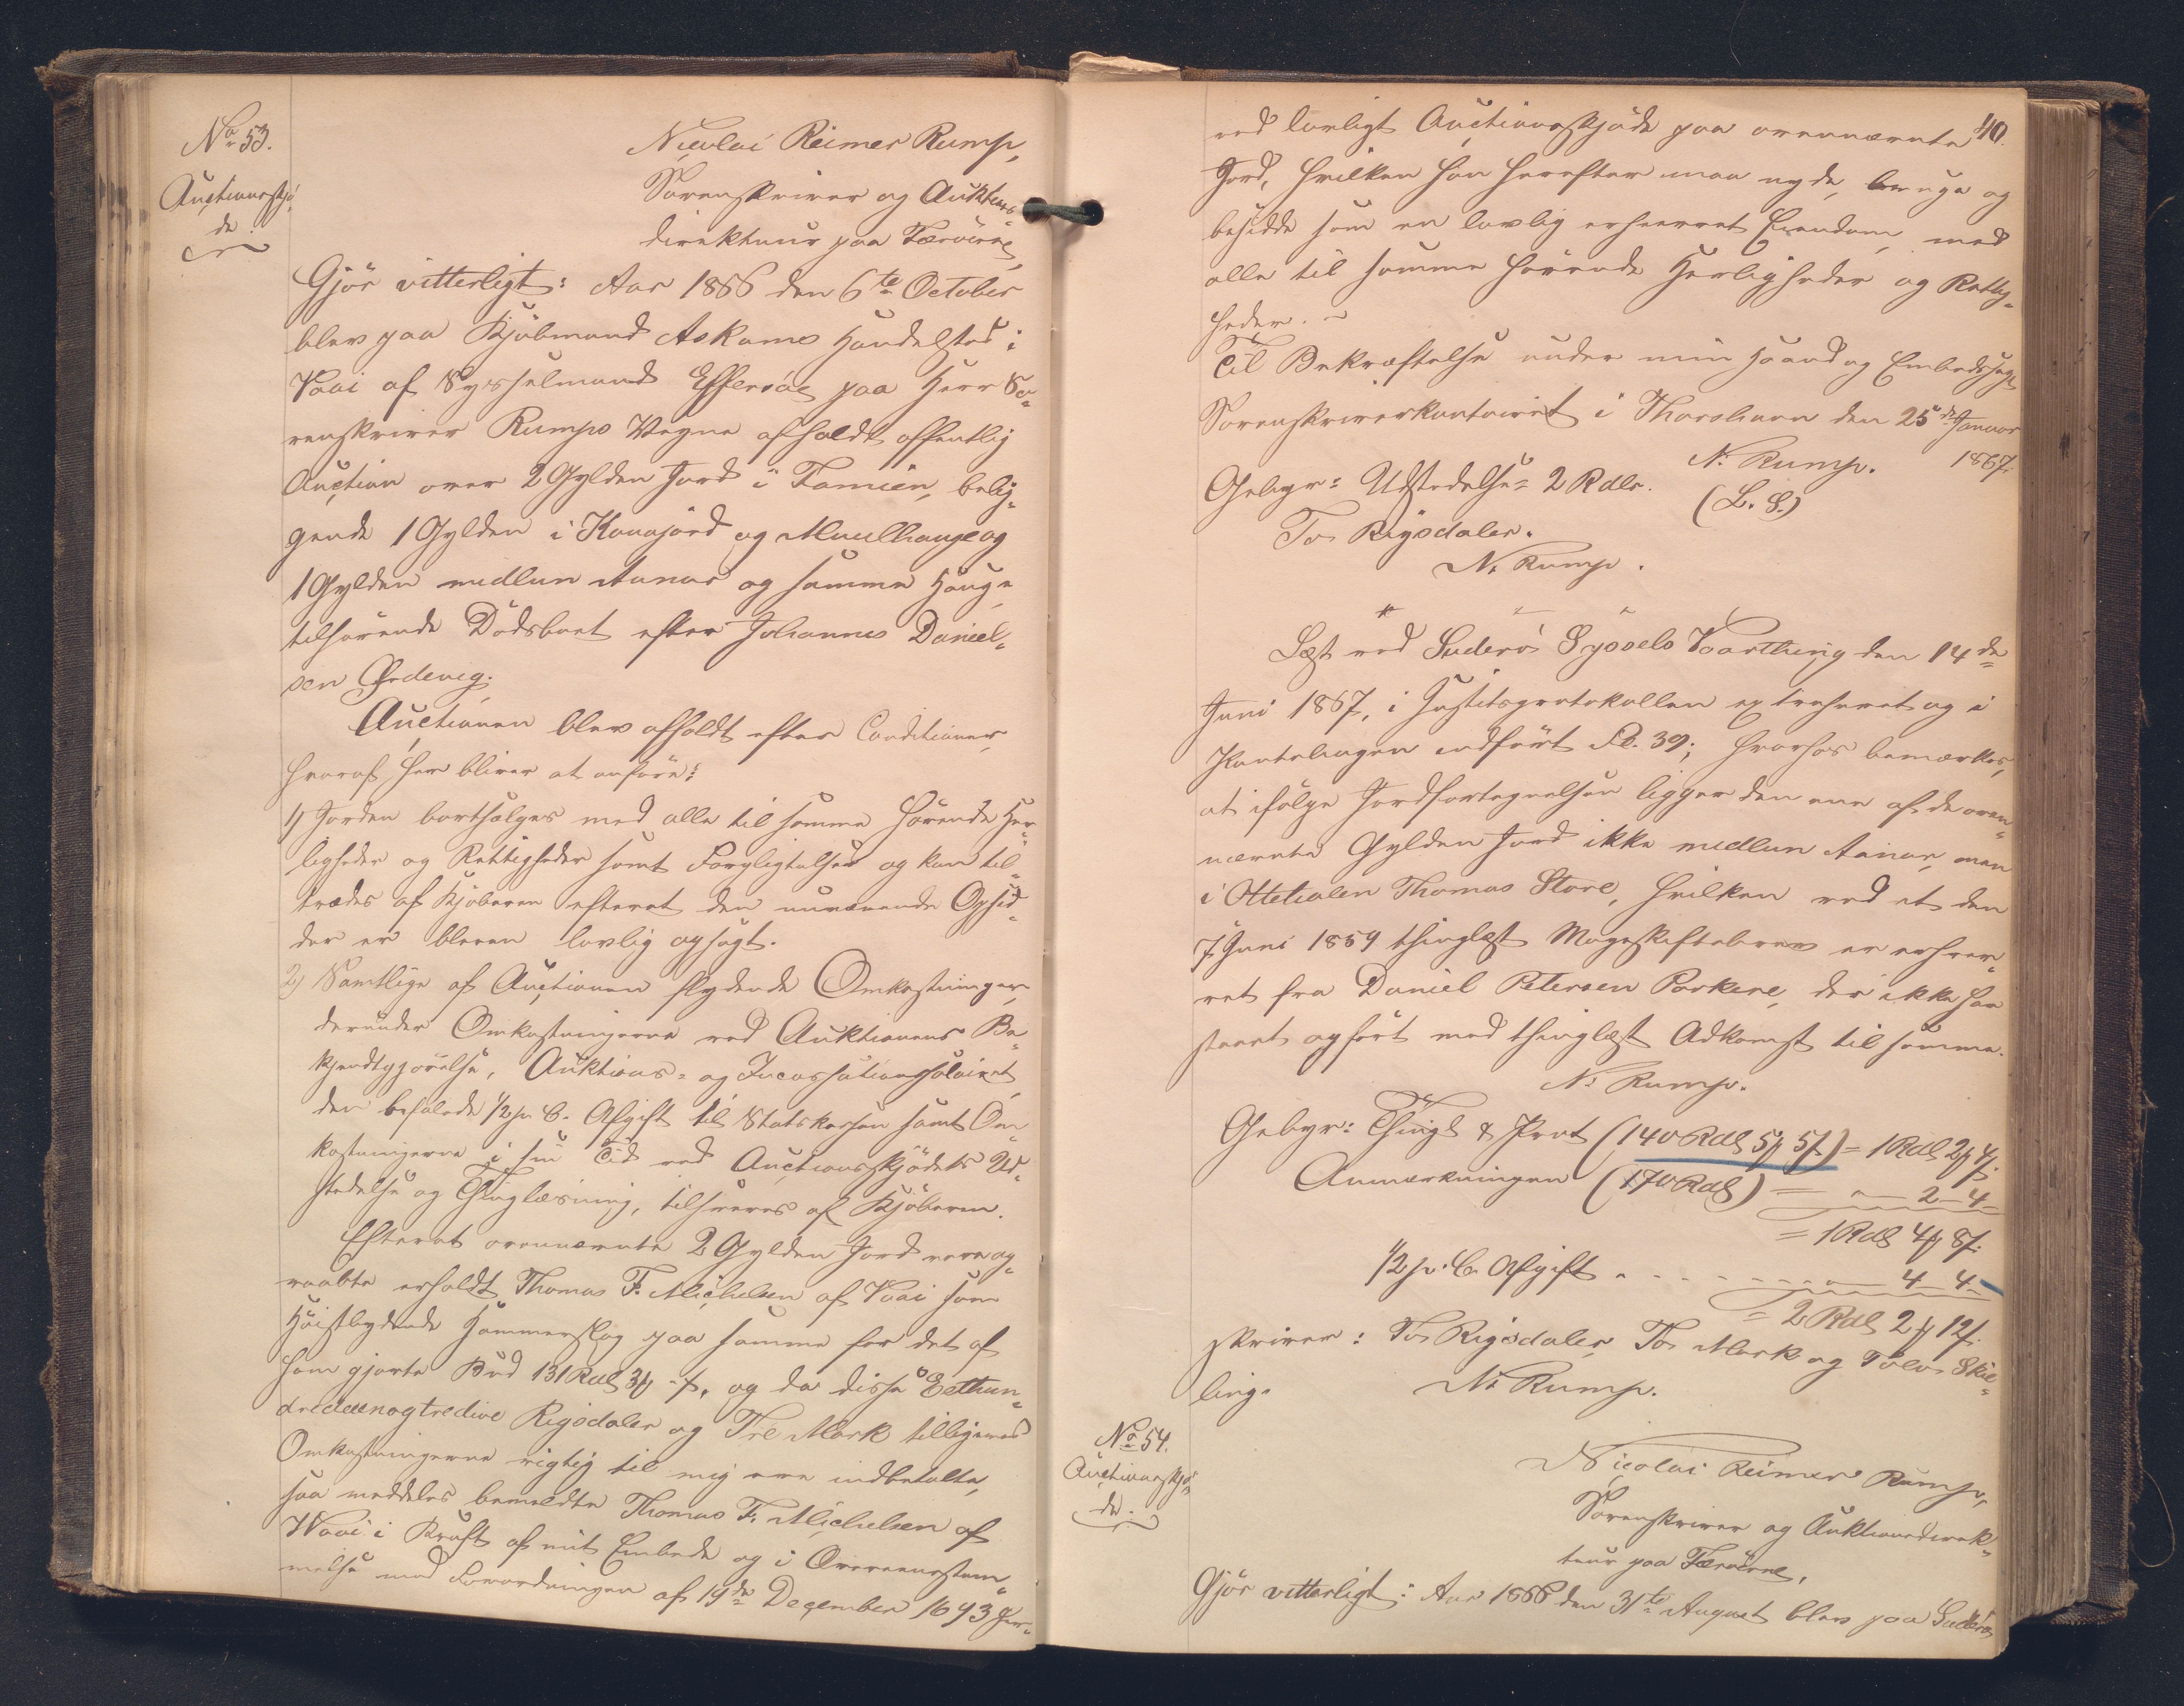 No 53.
Auctionsskjö-
de
Nicolai Reimer Rump,
Sorenskriver og Auktions-
direkteur paa Færöerne,
Gjör vitterligt: Aar 1866 den 6te October
blev paa Kjöbmand Askams Handelsted i
Vaai af Sysselmand Effersöe paa Herr So-
renskriver Rumps Vegne afholdt offentlig
Auction over 2 Gylden Jord i Famien, belig-
gende 1 Gylden i Kanajord og Muulhauge og
1 Gylden mellem Aanar og samme Hauge,
tilhörende Dödsboet efter Johannes Daniel-
sen Ördevig.
Auctionen blev afholdt efter Conditioner,
hvoraf her bliver at anföre:
1) Jorden bortsælges med alle til samme hörende Her-
ligheder og Rettigheder samt Forpligtelser og kan til-
trædes af Kjöberen efterat den nuværende Opsid-
der er bleven lovlig opsagt.
2) Samtlige af Auctionen flydende Omkostninger,
derunder Omkostningerne ved Auktionens Be-
kjendtgjörelse, Auktions- og Incassationssalairet,
den befalede 1/2 p. C. Afgift til Statskassen samt Om-
kostningerne i sin Tid ved Auctionsskjödets Ud-
stedelse og Thinglæsning, tilsvares af Kjöberen.
Efterat ovennævnte 2 Gylden Jord vare op-
raabte erholdt Thomas F. Michelsen af Vaai som
Höistbydende Hammerslag paa samme for det af
ham gjorte Bud 131 Rdl 3 ₰ - ß, og da disse Eethun-
dredeenogtredive Rigsdaler og Tre Mark tilligemed
Omkostningerne rigtig til mig ere indbetalte,
saa meddeles bemeldte Thomas F. Michelsen af
Waai i Kraft af mit Embede og i Overeensstem-
melse med Forordningen af 19de December 1693 her-
40.
ved lovligt Auctionsskjöde paa ovennævnte
Jord, hvilken han herefter maa nyde, bruge og
besidde som en lovlig erhvervet Eiendom, med
alle til samme hörende Herligheder og Rettig-
heder. -
Til Bekræftelse under min Haand og Embedssegl
Sorenskriverkontoiret i Thorshavn den 25de Januar
1867.
N. Rump.
(L. S.)
Gebyr: Udstedelse = 2 Rdlr.
To Rigsdaler.
N. Rump.
Læst ved Suderö Syssels Vaarthing den 14de
Juni 1867, i Justitsprotokollen extraheret og i
Panteboger indfört Fol. 39; hvorhos bemærkes,
at ifölge Jordfortegnelsen ligger den ene af de oven-
nævnte Gylden Jord ikke mellem Aanar, men
i Ottetialen Thomas Stove, hvilken ved et den
7 Juni 1859 thinglæst Mageskiftebrev er erhver-
vet fra Daniel Petersen Porkere, der ikke har
staaet opfört med thinglæst Adkomst til samme.
N. Rump.
Gebyr: Thingl & Prot (140 Rdl 5 ₰ 5 ß) = 1 Rdl 2 ₰ 4 ß
Anmærkningen (170 Rdl) = — 2 — 4 -
= 1 Rdl 4 ₰ 8 ß.
1/2 p. C. Afgift . . . . . — 4 — 4 -
= 2 Rdl 2 ₰ 12 ß.
skriver: To Rigsdaler To Mark og Tolv Skil-
ling.
N. Rump.
No 54.
Auctionsskjö-
de
Nicolai Reimer Rump,
Sorenskriver og Auktionsdirek-
teur paa Færöerne,
Gjör vitterligt: Aar 1866 den 31te August blev paa Suderö